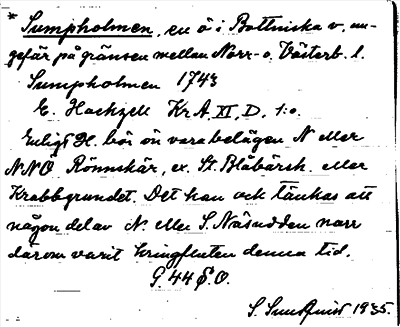 * Sumpholmen, en ö i Bottniska v. un-
gefär på gränsen mellan Norr- o. Västerb. l.
Sumpholmen 1743
E. Hackzell KrA XI, D, 1:o.
Enligt H. bör ön vara belägen N eller
NNÖ Rönnskär, ex. St. Blåbärsh. eller
Krabbgrundet. Det kan ock tänkas att
någon del av N. eller S. Näsudden norr
därom varit kringfluten denna tid.
G. 44 S.O.
S. Sundquist 1935.